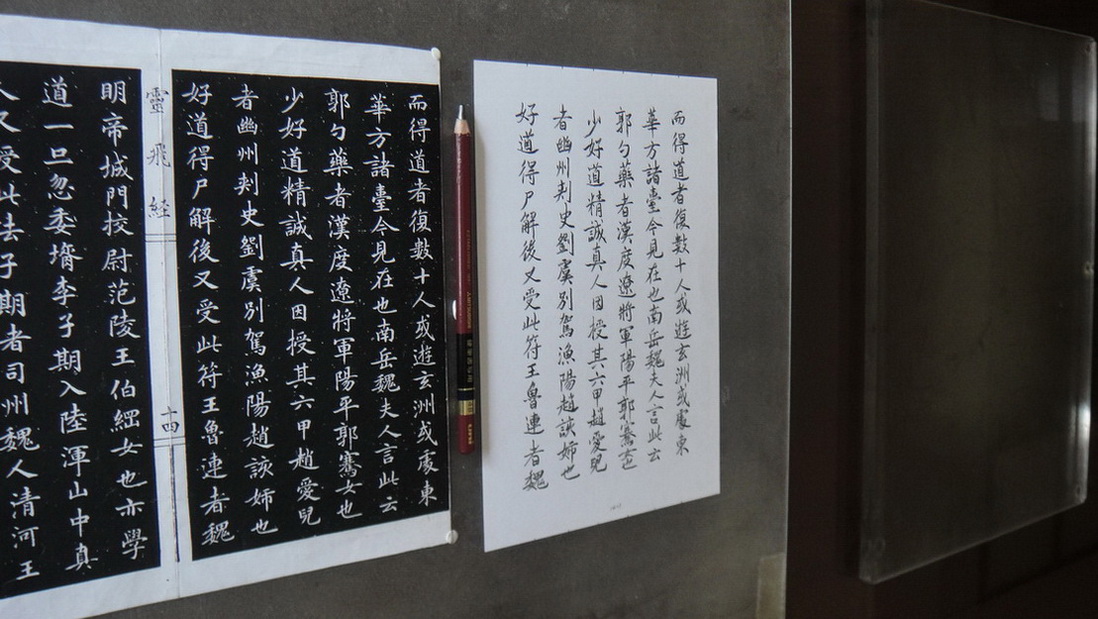 而得道者復數十人或遊玄洲或處東
華方諸臺今見在也南岳魏夫人言此云
郭勺藥者漢度遼將軍陽平郭騫女也
少好道精誠真人因授其六甲趙愛兒
者幽州刾史劉虞別駕漁陽趙該姉也
好道得尸解後又受此符王魯連者魏
靈飛経
十四
明帝城門挍尉范陵王伯綱女也亦學
道一旦忽委壻李子期入陸渾山中真
人又受此法子期者司州魏人清河王
而得道者復數十人或遊玄洲或處東
華方諸臺今見在也南岳魏夫人言此云
郭勺藥者漢度遼將軍陽平郭騫女也
少好道精誠真人因授其六甲趙愛兒
者幽州刾史劉虞別駕漁陽趙該姉也
好道得尸解後又受此符王魯連者魏